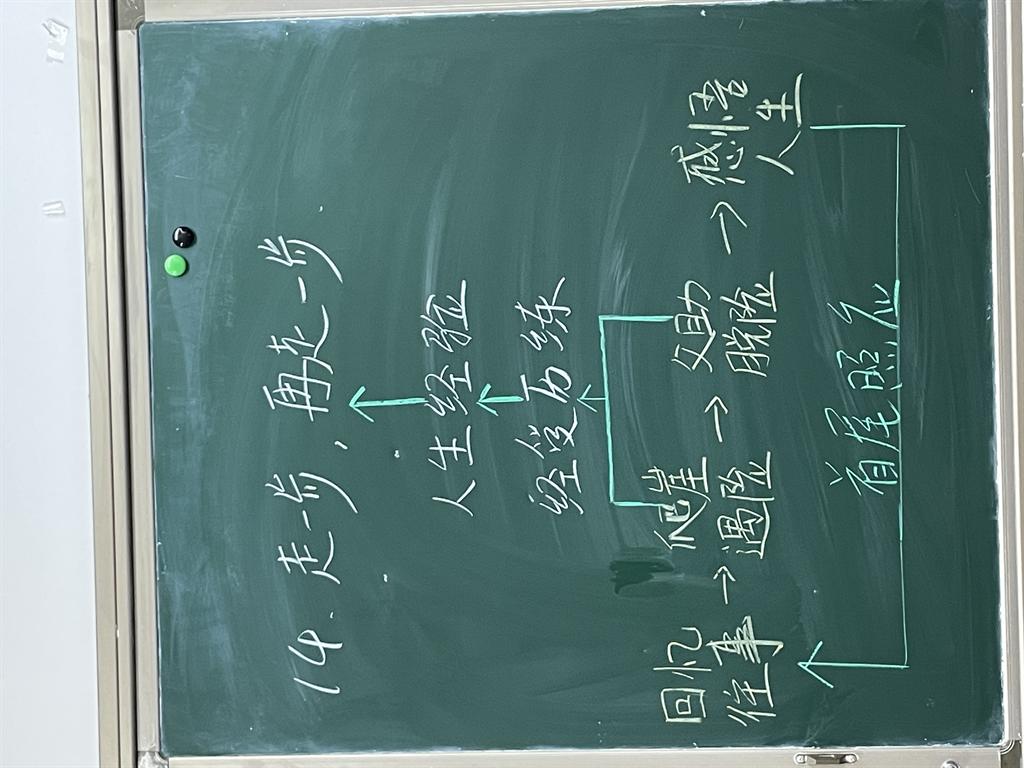 14.走一步,再走一步
人生经验
经受历练
回忆
往事
→
爬崖
遇险
→
父助
脱险
→
感悟
人生
首尾照应